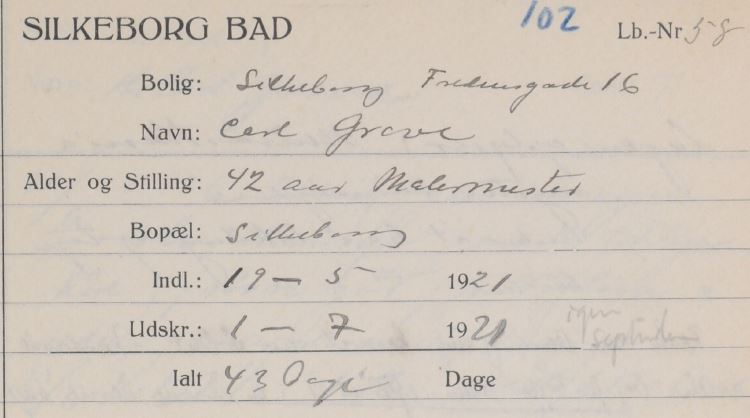 SILKEBORG BAD 102 Lb.-Nr 58
Bolig: Silkeborg Fredensgade 16
Navn: Carl Grove
Alder og Stilling: 42 aar Malermester
Bopæl: Silkeborg
Indl.: 19 — 5 1921
Udskr.: 1 — 7 1921 igen september
Ialt 43 Dage Dage